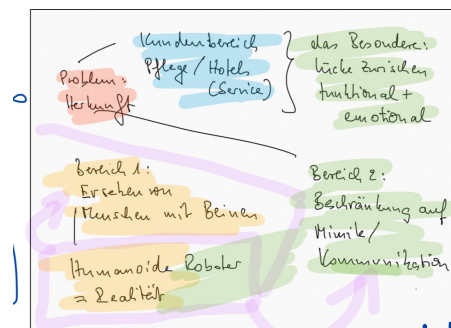 Kundenbereich
Pflege / Hotels
(Service)
das Besondere:
Lücke zwischen
funktional +
emotional
Problem:
Herkunft
Bereich 1:
Ersetzen von
Menschen mit Beinen
Humanoide Roboter
= Realität
Bereich 2:
Beschränkung auf
Mimik /
Kommunikation